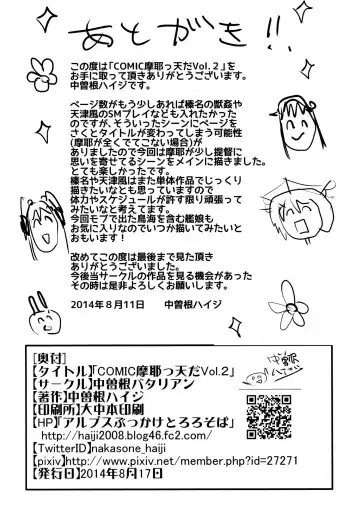 あとがき!!
この度は「COMIC摩耶っ天だVol.2」を
お手に取って頂きありがとうございます。
中曽根ハイジです。
ページ数がもう少しあれば榛名の獣姦や
天津風のSMプレイなども入れたかった
のですが、そういったシーンにページを
さくとタイトルが変わってしまう可能性
(摩耶が全くでてこない場合)が
ありましたので今回は摩耶が少し提督に
思いを寄せてるシーンをメインに描きました。
とても楽しかったです。
榛名や天津風はまた単体作品でじっくり
描きたいなとも思っていますので
体力やスケジュールが許す限り頑張って
みたいなと考えてます。
今回もモブで出た鳥海を含む艦娘も
お気に入りなのでいつか描いてみたいと
おもいます!
改めてこの度は最後まで見た頂き
ありがとうございました。
今後当サークルの作品を見る機会があった
その時は是非よろしくお願いします。
2014年8月11日 中曽根ハイジ
[奥付]
【タイトル】「COMIC摩耶っ天だVol.2」
【サークル】中曽根バタリアン
【著作】中曽根ハイジ
【印刷所】大中本印刷
【HP】「アルプスぶっかけとろろそば」
http://haiji2008.blog46.fc2.com/
【TwitterID】nakasone_haiji
【pixiv】http://www.pixiv.net/member.php?id=27271
【発行日】2014年8月17日
中曽根
ハイジ